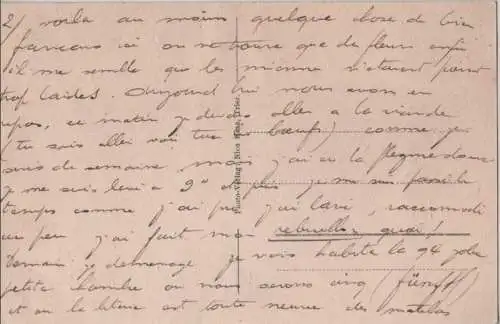 2/ voila au moins quelque chose de bien
français ici on ne trouve que des fleurs enfin
il me semble que les miennes n'étaient point
trop laides. Aujourd'hui nous avons eu
repos, ce matin je devais aller à la viande
(tu sais aller voir tuer les bœufs) comme je
suis de semaine, mais j'ai eu la flegme donc
je me suis levé à 9h et puis je me suis passé le
temps comme j'ai pu, j'ai lavé, raccommodé
un peu, j'ai fait ma rebuello, quoi!
Demain je déménage je vais habiter la 94 jolie
petite chambre où nous serons cinq (fünf)
et où la literie est toute neuve des matelas
Photo-Verlag Nics